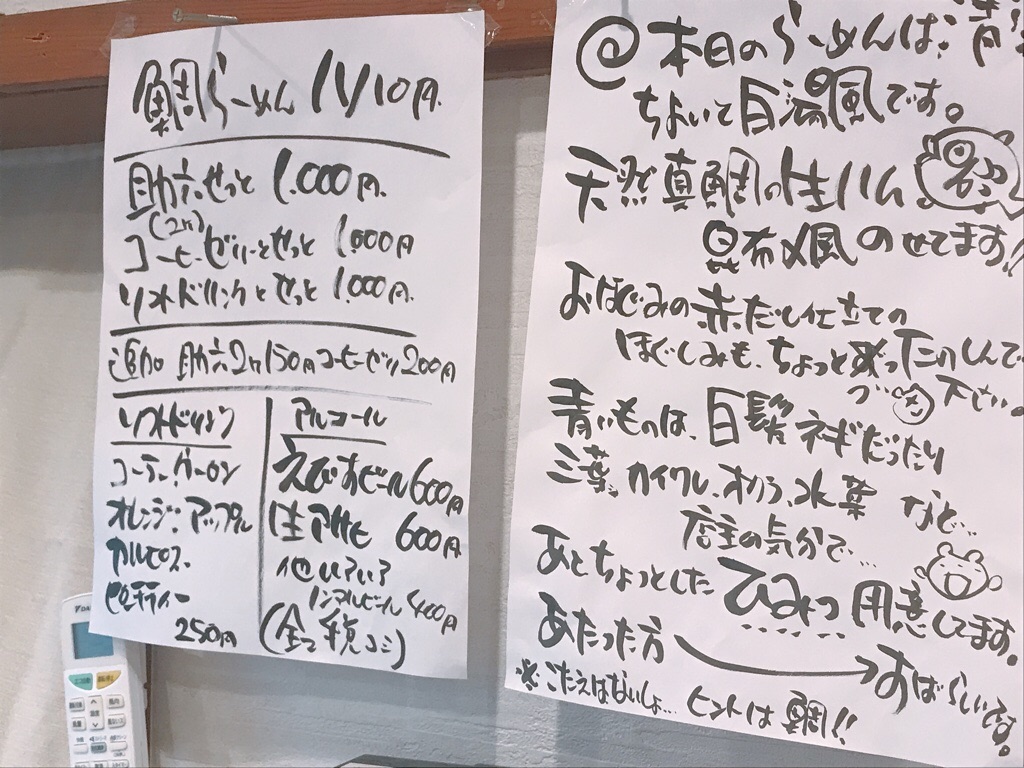 鯛らーめん
助六せっと 1.000円
(2ヶ)
コーヒーゼリーとせっと 1.000円
ソフトドリンクとせっと 1.000円
追加 助六2ヶ150円コーヒーゼリ200円
ソフトドリンク
コーラ、ウーロン
オレンジ、アップル
カルピス、
ピーチティー
250円
アルコール
えびすビール600円
生アサヒ 600円
他いろいろ
ノンアルビール 400円
(全て税コミ)
@本日のらーめんは、
ちょいて白湯風です。
天然真鯛の生ハム
昆布〆風 のせてます!!
よほぐみの赤だし仕立ての
ほぐしみも、ちょっと
下さい。
青いものは、白髪ネギだったり
三葉、カイワレ、オクラ、水菜 など…
店主の気分で…
あとちょっとした ひみつ 用意してます。
あたった方 すばらしいです。
※こたえはないしょ… ヒントは 鯛!!